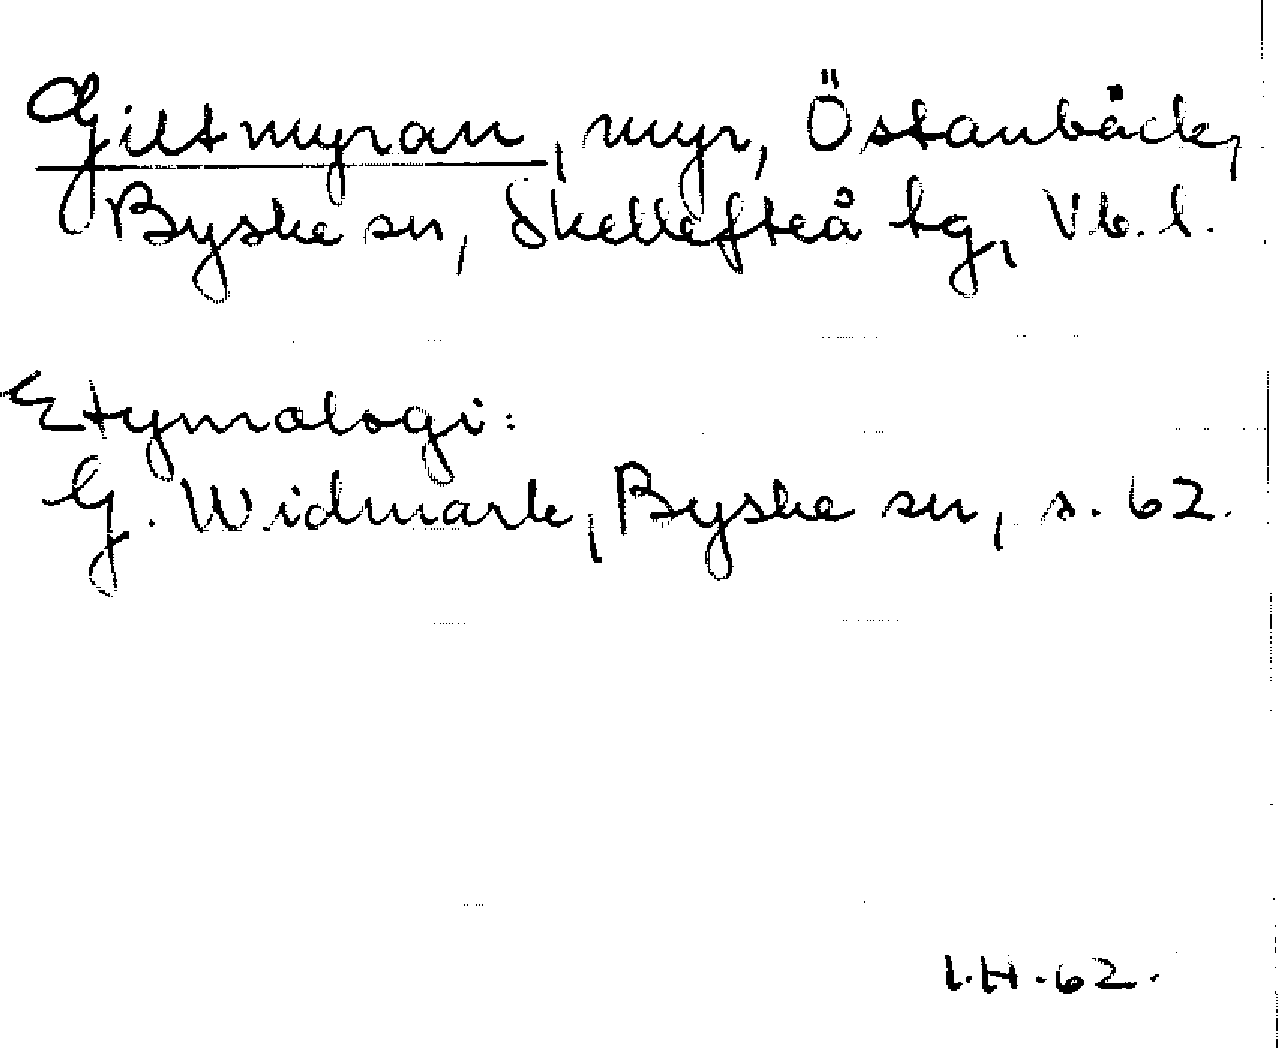 Giltmyran, myr, Östanbäck,
Byske sn, Skellefteå tg, Vb. l.
Etymologi:
G. Widmark, Byske sn, s. 62.
I.H.62.